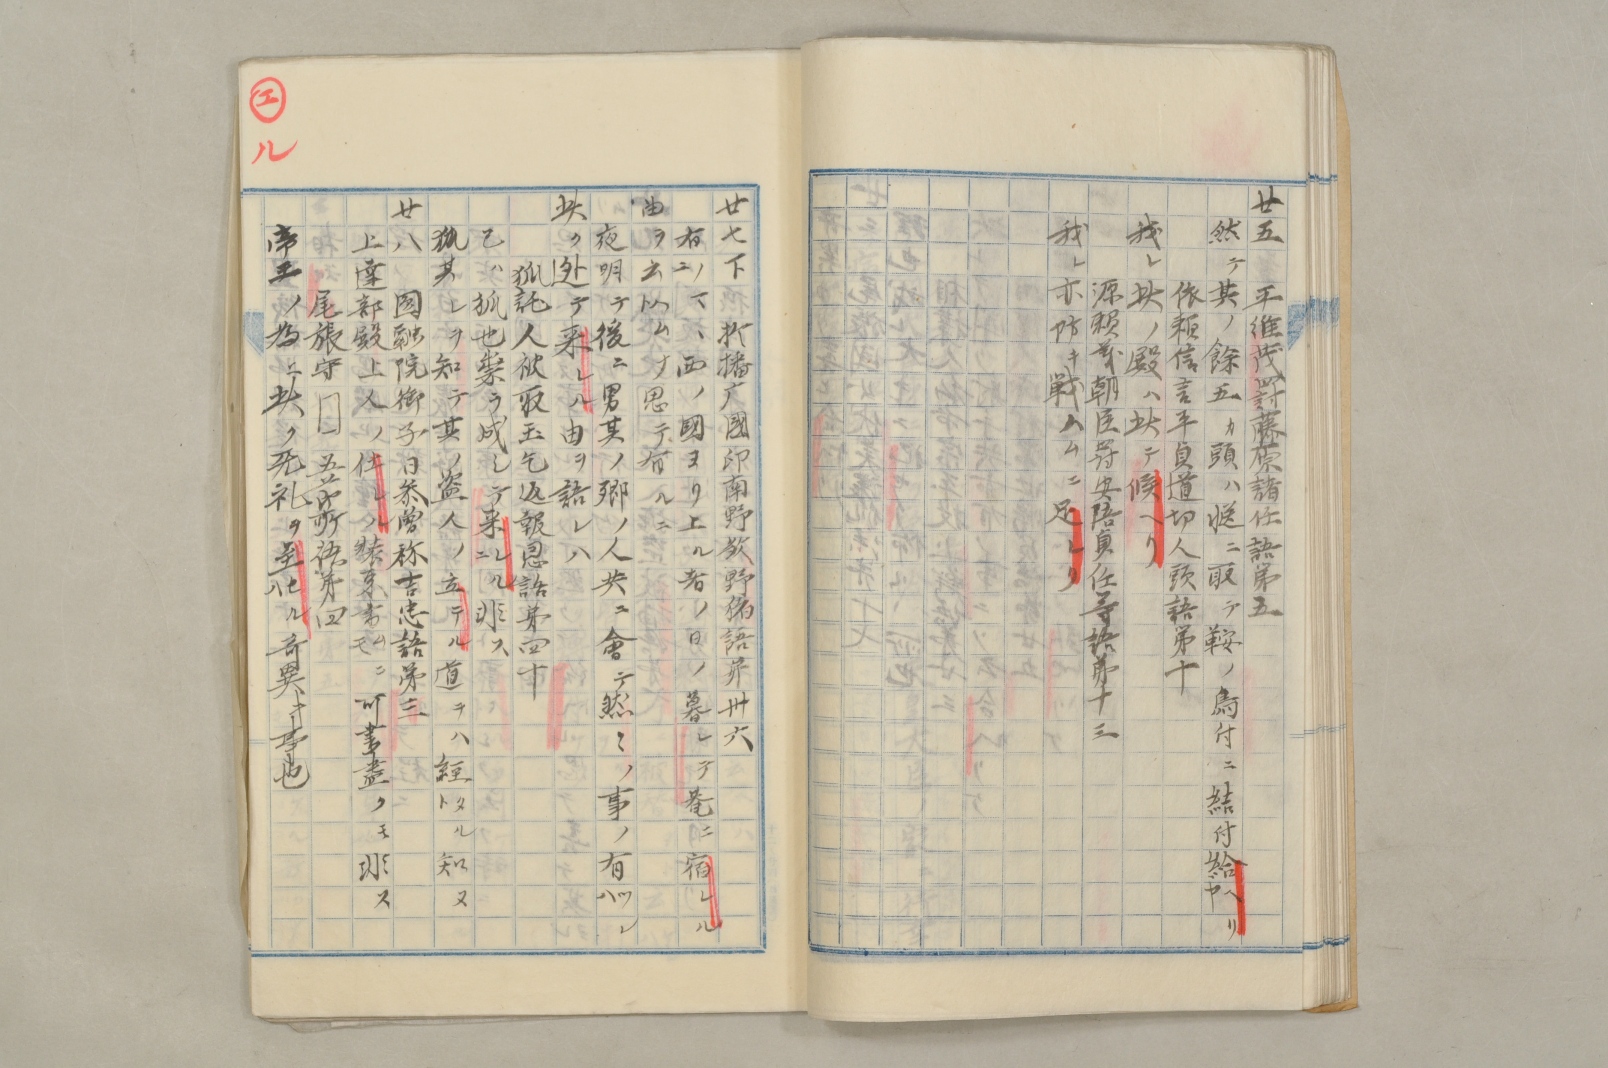 廿五 平維茂罸藤原諸任語第五
然テ其ノ餘五カ頭ハ慥ニ取テ鞍ノ鳥付ニ結付給ヘリヤ
依頼信言平貞道切人頭語第十
我レ此ノ殿ハ此テ候ヘリ
源頼義朝臣罸安陪貞任等語第十三
我レ亦防キ戦ハムニ足レリ
廿七下 於播广國印南野殺野猪語第卅六
有ニノマヽ西ノ國ヨリ上ル者ノ日ノ暮レテ菴ニ宿レル
由ヲ云ハムナト思テ有ルニ
夜明テ後ニ男其ノ郷ノ人共ニ會テ然〻ノ事ノ有ツレハ
此ク逃テ来レル由ヲ語レハ
狐託人被取玉乞返報恩語第四十
己ハ狐也祟ヲ成シテ来ニレル非ス
狐其レヲ知テ其ノ盗人ノ立テル道ヲハ經トタル知ヌ
廿八 圓融院御子日参曽祢吉忠語第三
上達部殿上人ノ仕レルノ装束ムニ可書盡クモ非ス
尾張守□五節所語第四
帝王ノ為ニ此ク死礼ヲ至セル奇異キ事也
㋓
ル